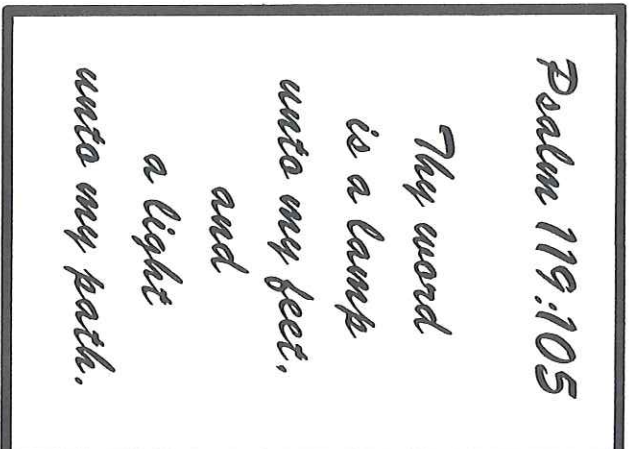 Psalm 119:105
Thy word
is a lamp
unto my feet,
and
a light
unto my path.